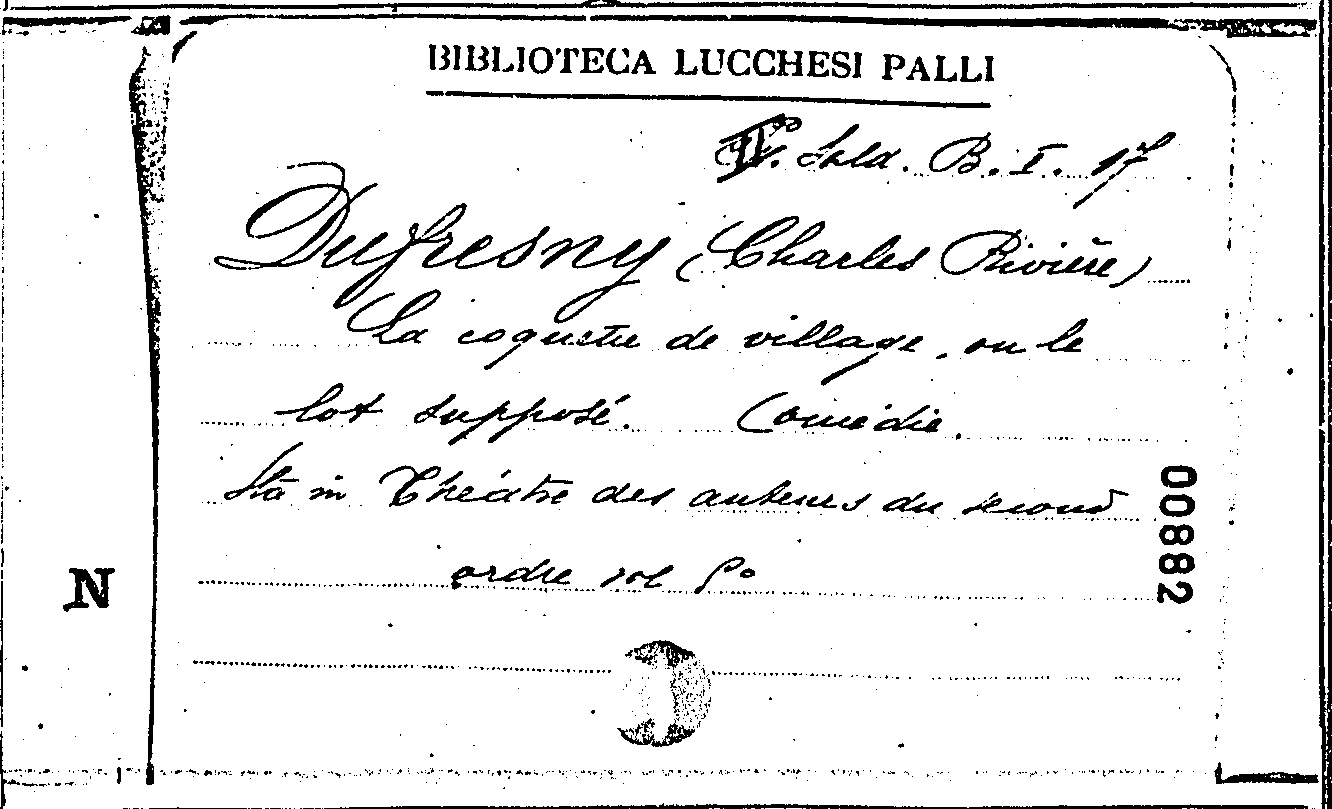 BIBLIOTECA LUCCHESI PALLI
Sala. B. I. 17
Dufresny (Charles Rivière)
La coquette de village, ou le
lot supposé. Comédie.
Sta in Théâtre des auteurs du second
ordre vol
00882
N